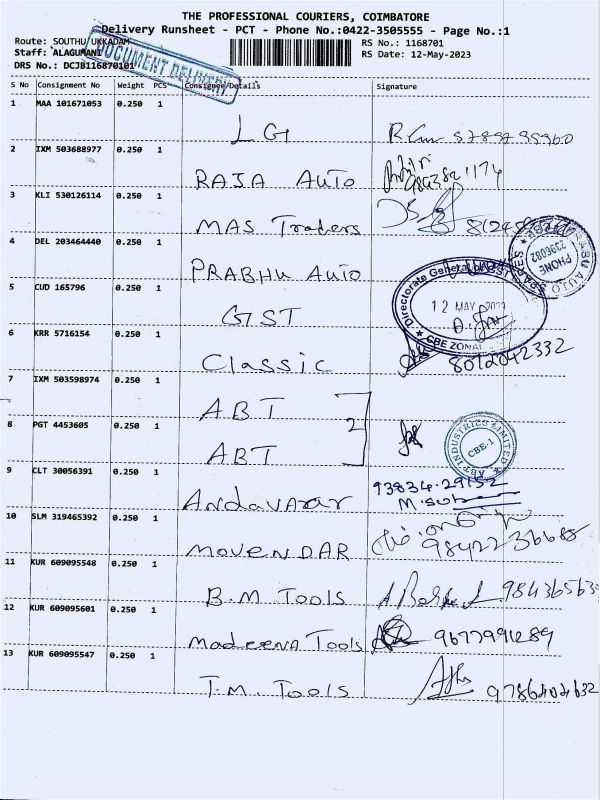 THE PROFESSIONAL COURIERS, COIMBATORE
Delivery Runsheet - PCT - Phone No.:0422-3505555 - Page No.:1
Route: SOUTHU UKKADAM
RS No.: 1168701
Staff: ALAGUMANI
RS Date: 12-May-2023
DRS No.: DCJB116870101
DOCUMENT DELIVERY
S No Consignment No Weight PCS Consignee/Details Signature
1 MAA 101671053 0.250 1
LG
2 IXM 503688977 0.250 1
RAJA AUTO
3 KLI 530126114 0.250 1
MAS Traders
4 DEL 203464440 0.250 1
PRABHU AUTO
PHONE 2396082
5 CUD 165796 0.250 1
GST
Directorate General
12 MAY 2023
CBE ZONAL
6 KRR 5716154 0.250 1
Classic 8012042332
7 IXM 503598974 0.250 1
ABT
2
8 PGT 4453605 0.250 1
ABT
ABT INDUSTRIES LIMITED
CBE-1
9 CLT 30056391 0.250 1
Andavarar 93834.29152
10 SLM 319465392 0.250 1
MOVENDAR
11 KUR 609095548 0.250 1
B.M TOOLS
12 KUR 609095601 0.250 1
Madeena Tools 9677991289
13 KUR 609095547 0.250 1
T.M. Tools 9786404632